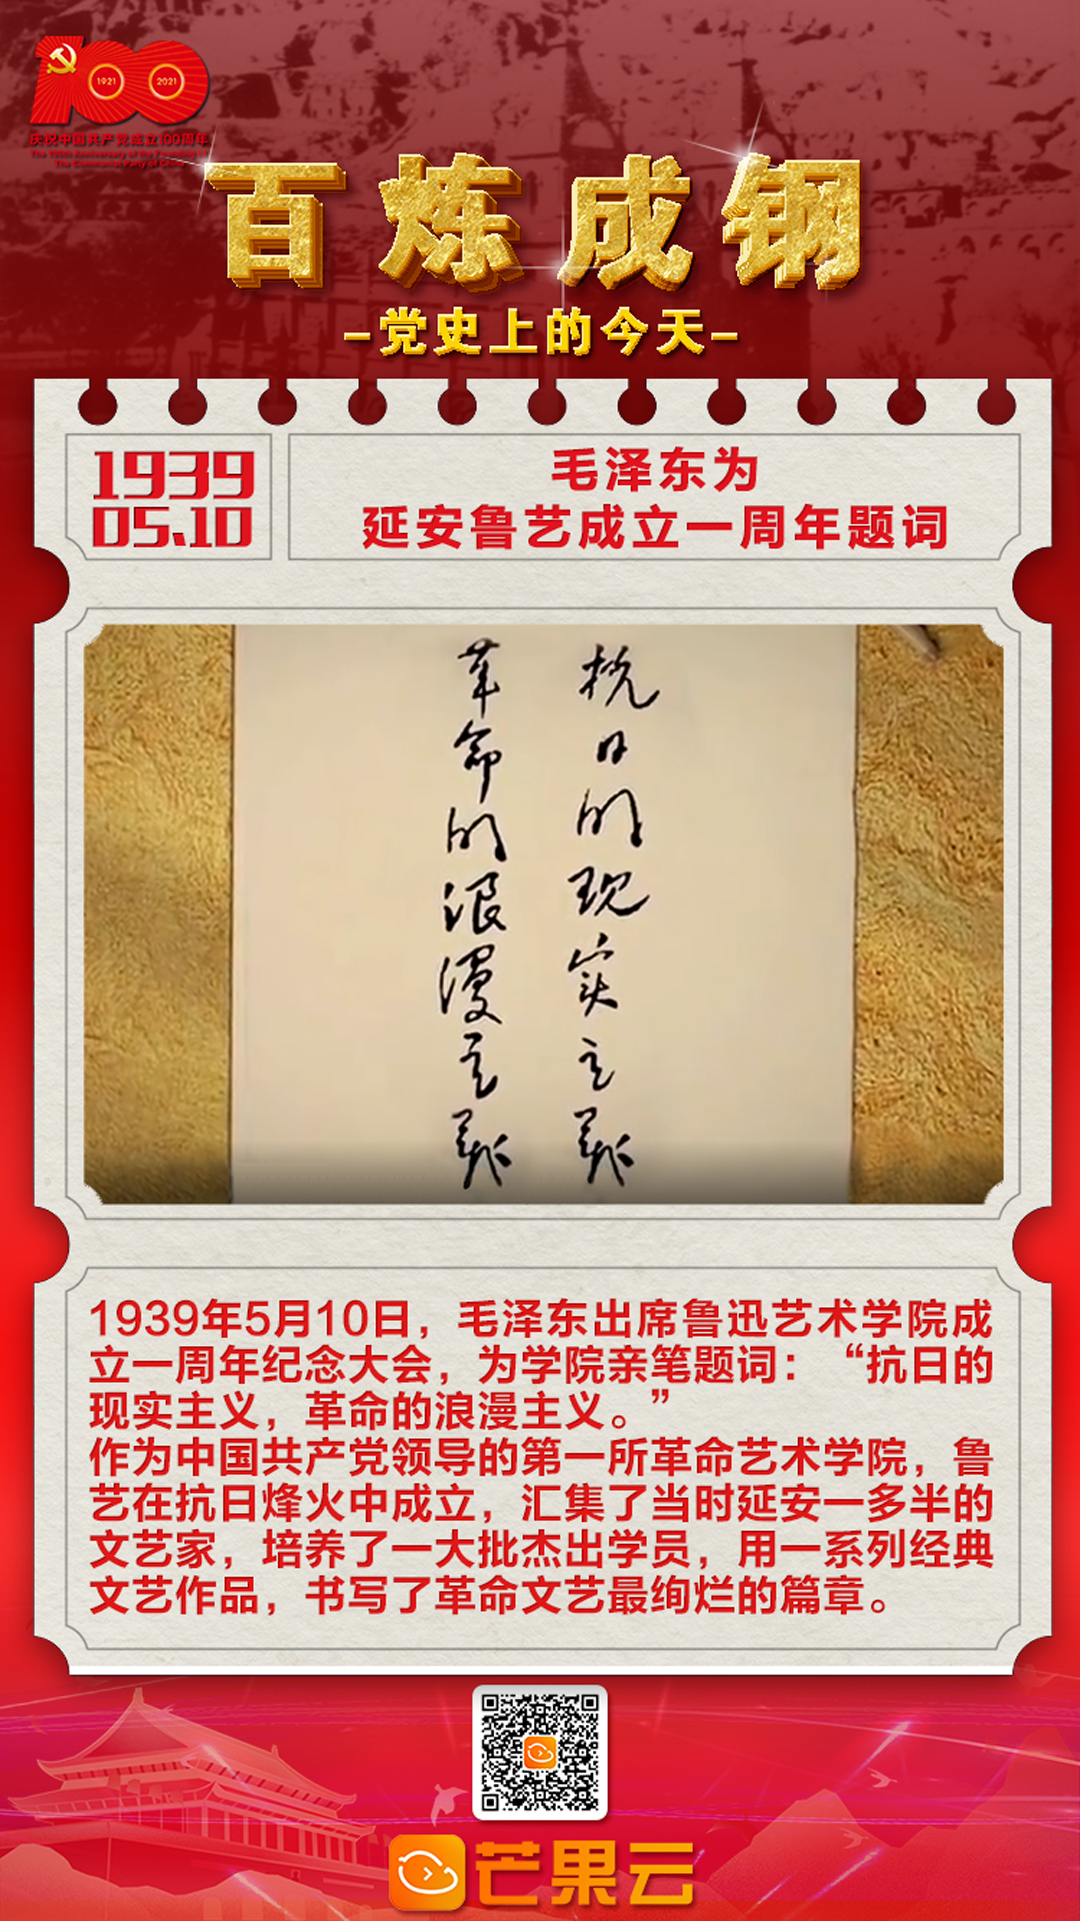 1921
2021
庆祝中国共产党成立100周年
The 100th Anniversary of the Founding of
The Communist Party of China
百炼成钢
-党史上的今天-
1939
05.10
毛泽东为
延安鲁艺成立一周年题词
抗日的现实主义
革命的浪漫主义
1939年5月10日，毛泽东出席鲁迅艺术学院成
立一周年纪念大会，为学院亲笔题词：“抗日的
现实主义，革命的浪漫主义。”
作为中国共产党领导的第一所革命艺术学院，鲁
艺在抗日烽火中成立，汇集了当时延安一多半的
文艺家，培养了一大批杰出学员，用一系列经典
文艺作品，书写了革命文艺最绚烂的篇章。
芒果云